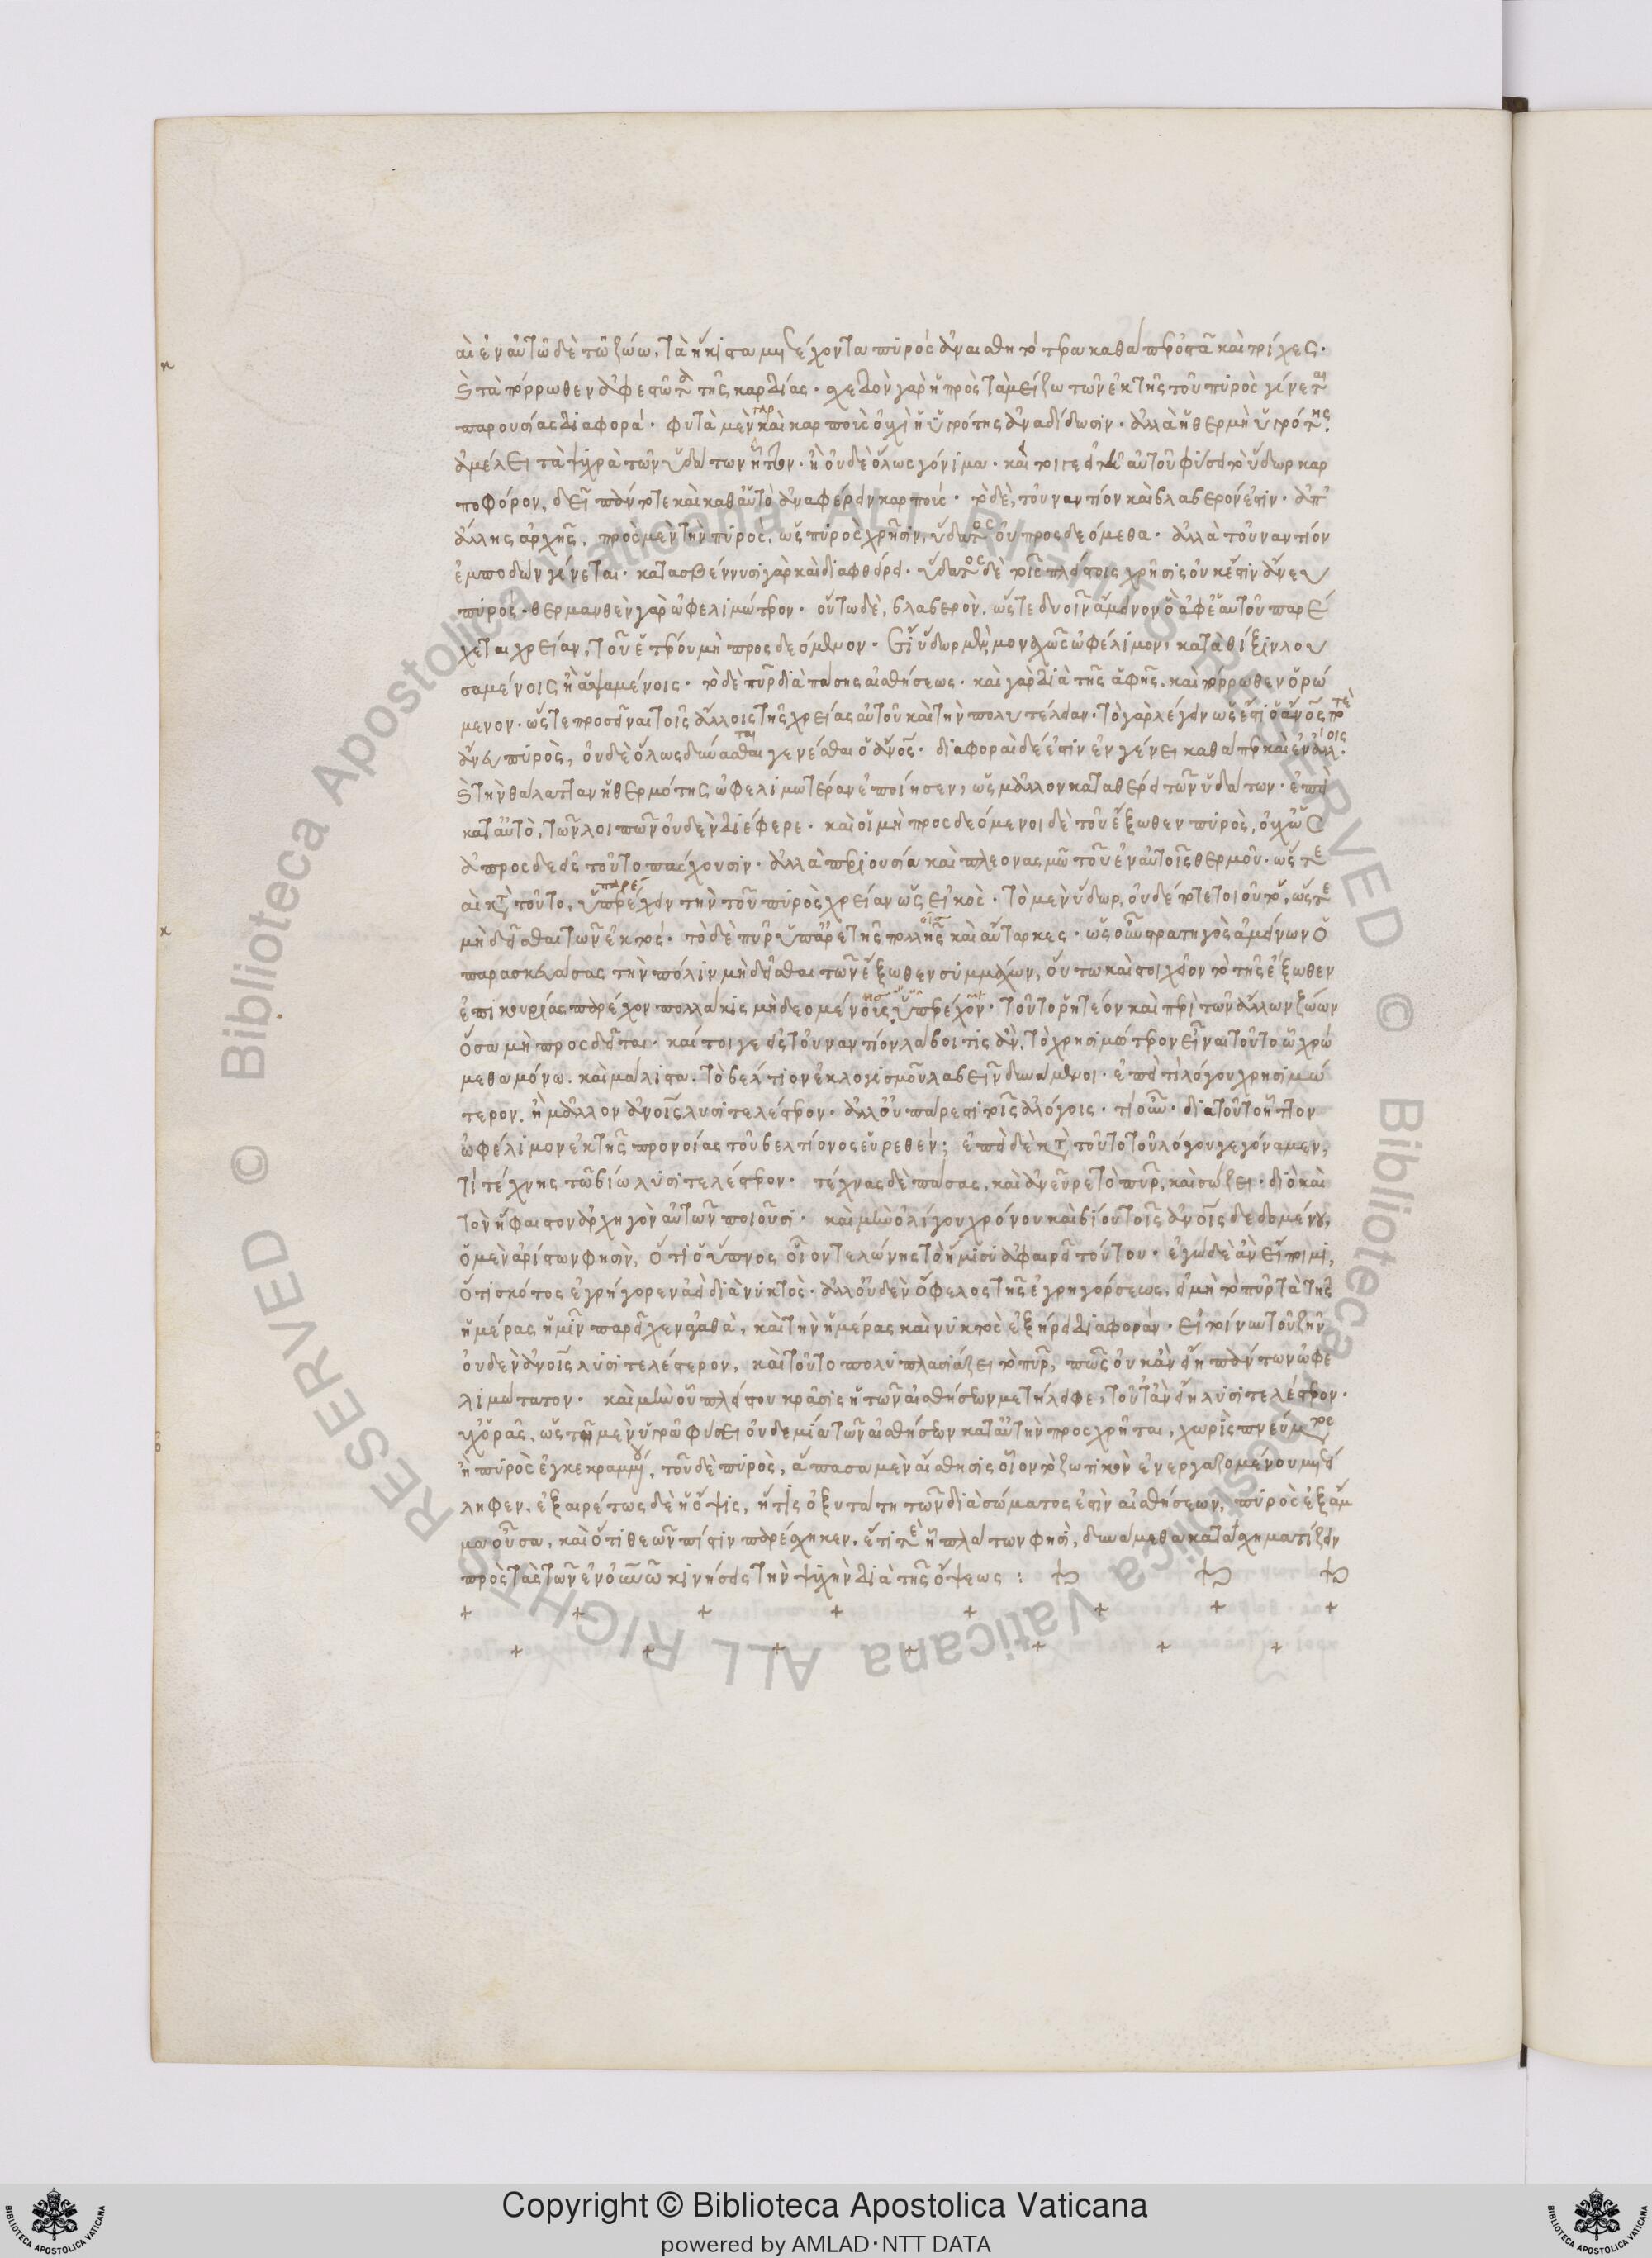 αι ἐν αὐτῶ δὲ τῶ ζώω, τὰ ἥκιστα μετέχοντα πυρὸς ἀναισθητότερα καθάπερ ὀστᾶ καὶ τρίχες.
καὶ τὰ πόρρωθεν ἀφεστῶτα τῆς καρδίας. σχεδὸν γὰρ ἡ πρὸς τὰ μείζω τῶν ἐκ τῆς τοῦ πυρὸς γίνεται
παρουσίας διαφορά. φυτὰ μὲν γὰρ καὶ καρποὺς οὐχὶ ἡ ὑγρότης ἀναδίδωσιν. ἀλλὰ ἡ θερμὴ ὑγρότης.
ἀμέλει τὰ ψυχρὰ τῶν ὑδάτων ἧττον. ἢ οὐδὲ ὅλως γόνιμα. καίτοιγε εἰ αὐτοῦ φύσει τὸ ὕδωρ καρ
ποφόρον, δεῖ πάντοτε καὶ καθ αὑτὸ ἀναφέρειν καρπούς. τὸ δὲ, τοὐναντίον καὶ βλαβερόν ἐστιν. ἀπ
ἄλλης ἀρχῆς. πρὸς μὲν τὴν πυρὸς, ὡς πυρὸς χρῆσιν, ὕδατος οὐ προσδεόμεθα. ἀλλὰ τοὐναντίον
ἐμποδὼν γίνεται. κατασβέννυσι γὰρ καὶ διαφθείρει. ὕδατος δὲ τοῖς πλείστοις χρῆσις οὐκ ἔστιν ἄνευ
πυρός. θερμανθὲν γὰρ ὠφελιμώτερον. οὕτω δὲ, βλαβερὸν. ὥστε δυοῖν ἄμεινον ὃ ἀφ ἑαυτοῦ παρέ
χεται χρείαν, τοῦ ἑτέρου μὴ προσδεόμενον. ἔτι ὕδωρ μὲν μοναχῶς ὠφέλιμον, κατὰ θίξιν λου
σαμένοις ἢ ἁψαμένοις. τὸ δὲ πῦρ διὰ πάσης αἰσθήσεως. καὶ γὰρ διὰ τῆς ἁφῆς. καὶ πόρρωθεν ὁρώ
μενον. ὥστε προσεῖναι τοῖς ἄλλοις τῆς χρείας αὐτοῦ καὶ τὴν πολυτέλειαν. τὸ γὰρ λέγειν ὡς ἔστι ὁ ἄνος ποτὲ
ἄνευ πυρὸς, οὐδὲ ὅλως δύναται γενέσθαι ὁ ἄνος. διαφοραὶ δέ ἐστιν ἐν γένει καθάπερ καὶ ἐν ἄλλοις.
καὶ τὴν θάλατταν ἡ θερμότης ὠφελιμωτέραν ἐποίησεν, ὡς μᾶλλον καταθερει τῶν ὑδάτων. ἐπεὶ
κατ αὐτὸ, τῶν λοιπῶν οὐδὲν διέφερε. καὶ οἱ μὴ προσδεόμενοι δὲ τοῦ ἔξωθεν πυρὸς, οὐχ ὡς
ἀπροσδεεῖς τοῦτο πάσχουσιν. ἀλλὰ περιουσία καὶ πλεονασμῶ τοῦ ἐν αὐτοῖς θερμοῦ. ὥστε
αι κατὰ τοῦτο, ὑπερέχειν τὴν τοῦ πυρὸς χρείαν ὡς εἰκὸς. τὸ μὲν ὕδωρ, οὐδέποτε τοιοῦτον, ὥστε
μὴ δεῖσθαι τῶν ἐκτός. τὸ δὲ πῦρ ὑπὸ ἀρετῆς πολλῆς καὶ αὔταρκες. ὡς οὖν στρατηγὸς ἀμείνων ὁ
παρασκευάσας τὴν πόλιν μὴ δεῖσθαι τῶν ἔξωθεν συμμάχων, οὕτω καὶ στοιχεῖον τὸ τῆς ἔξωθεν
ἐπικουρίας παρέχον πολλάκις μὴ δεομένους ὑπερέχον. τοῦτο ῥητέον καὶ περὶ τῶν ἄλλων ζώων
ὅσα μὴ προσδεῖται. καίτοιγε εἰς τοὐναντίον λάβοι τις ἂν, τὸ χρησιμώτερον εἶναι τοῦτο ὧ χρώ
μεθα μόνω. καὶ μάλιστα. τὸ βέλτιον ἐκ λογισμοῦ λαβεῖν δυνάμενοι. ἐπεὶ τί λόγου χρησιμώ
τερον. ἢ μᾶλλον ἀνοις λυσιτελέστερον. ἀλλ οὐ πάρεστι τοῖς ἀλόγοις. τί οὖν. διὰ τοῦτο ἧττον
ὠφέλιμον ἐκ τῆς προνοίας τοῦ βελτίονος εὑρεθέν; ἐπεὶ δὲ κατὰ τοῦτο τοῦ λόγου γεγόναμεν,
τί τέχνης τῶ βίω λυσιτελέστερον. τέχνας δὲ πάσας, καὶ ἀνεῦρε τὸ πῦρ, καὶ σώζει. διὸ καὶ
τὸν ἥφαιστον ἀρχηγὸν αὐτῶν ποιοῦσι. καὶ μὴν ὀλίγου χρόνου καὶ βίου τοῖς ἀνοις δεδομένου,
ὁ μὲν ἀρίστων φησὶν, ὅτι ὁ ὕπνος οἷον τελώνης τὸ ἥμισυ ἀφαιρεῖ τούτου. ἐγὼ δὲ ἂν εἴποιμι,
ὅτι σκότος ἐγρήγορεν ἀεὶ διὰ νυκτὸς. ἀλλ οὐδὲν ὄφελος τῆς ἐγρηγόρσεως, εἰ μὴ τὸ πῦρ τὰ τῆς
ἡμέρας ἡμῖν παρεῖχεν ἀγαθὰ, καὶ τὴν ἡμέρας καὶ νυκτὸς ἐξῆρει διαφοράν. εἰ τοίνυν τοῦ ζῆν
οὐδὲν ἀνοις λυσιτελέστερον, καὶ τοῦτο πολυπλασιάζει τὸ πῦρ, πῶς οὐκ ἂν εἴη πάντων ὠφε
λιμώτατον. καὶ μὴν οὗ πλείστου κρᾶσις ἡ τῶν αἰσθήσεων μετείληφε, τοῦτ ἂν εἴη λυσιτελέστερον.
οὐχ ὁρᾶς, ὡς τῆ μὲν ὑγρᾶ φύσει οὐδεμία τῶν αἰσθήσεων κατ αὐτὴν προσχρῆται, χωρὶς πνεύματος
ἢ πυρὸς ἐγκεκραμένου, τοῦ δὲ πυρὸς, ἅπασα μὲν αἴσθησις οἷον τὸ ζωτικὸν ἐνεργαζομένου μετεί
ληφεν. ἐξαιρέτως δὲ ἡ ὄψις, ἥτις ὀξυτάτη τῶν διὰ σώματος ἐστὶν αἰσθήσεων, πυρὸς ἔξαμ
μα οὖσα, καὶ ὅτι θεῶν πίστιν παρέσχηκεν. ἔτι τὲ ἧ πλάτων φησὶ, δυνάμεθα κατασχηματίζειν
πρὸς τὰς τῶν ἐν οὐνῶ κινήσεις τὴν ψυχὴν διὰ τῆς ὄψεως :